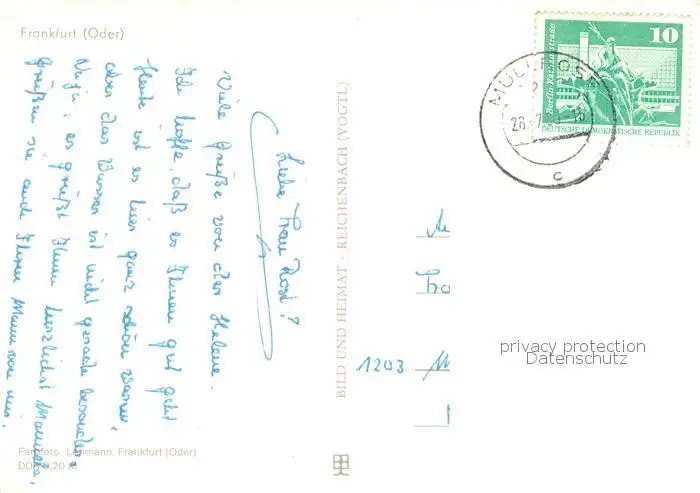 Frankfurt (Oder)
Liebe Frau Rost!
Viele Grüße von der Helene.
Ich hoffe, daß es Ihnen gut geht
Heute ist es hier ganz schön warm,
aber das Wasser ist nicht gerade besonders
Naja, es grüßt Ihnen herzlichst Manuela,
Grüßen sie auch Ihren Mann von mir.
Farbfoto: Lehmann, Frankfurt (Oder)
DDR 0,20 M
BILD UND HEIMAT · REICHENBACH (VOGTL)
10
Berlin, Rathausstraße
DEUTSCHE DEMOKRATISCHE REPUBLIK
MÜLLROSE
c
An
Fra
1203 M
privacy protection
Datenschutz